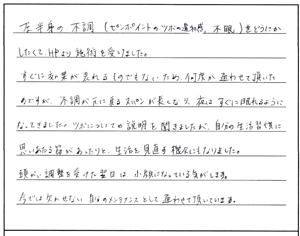 左半身の不調(ピンポイントのツボの違和感、不眠)をどうにか
したくて、HPより施術を受けました。
すぐに効果が表れるものでもないため、何度か通わせて頂いた
のですが、不調が元に戻るスパンが長くなり、夜はすぐに眠れるように
なってきました。ツボについての説明を聞きましたが、自分の生活習慣に
思いあたる節があったりと、生活を見直す機会にもなりました。
頭がい調整を受けた翌日は、小顔になっている気がします。
今では欠かせない 自分のメンテナンスとして通わせて頂いています。